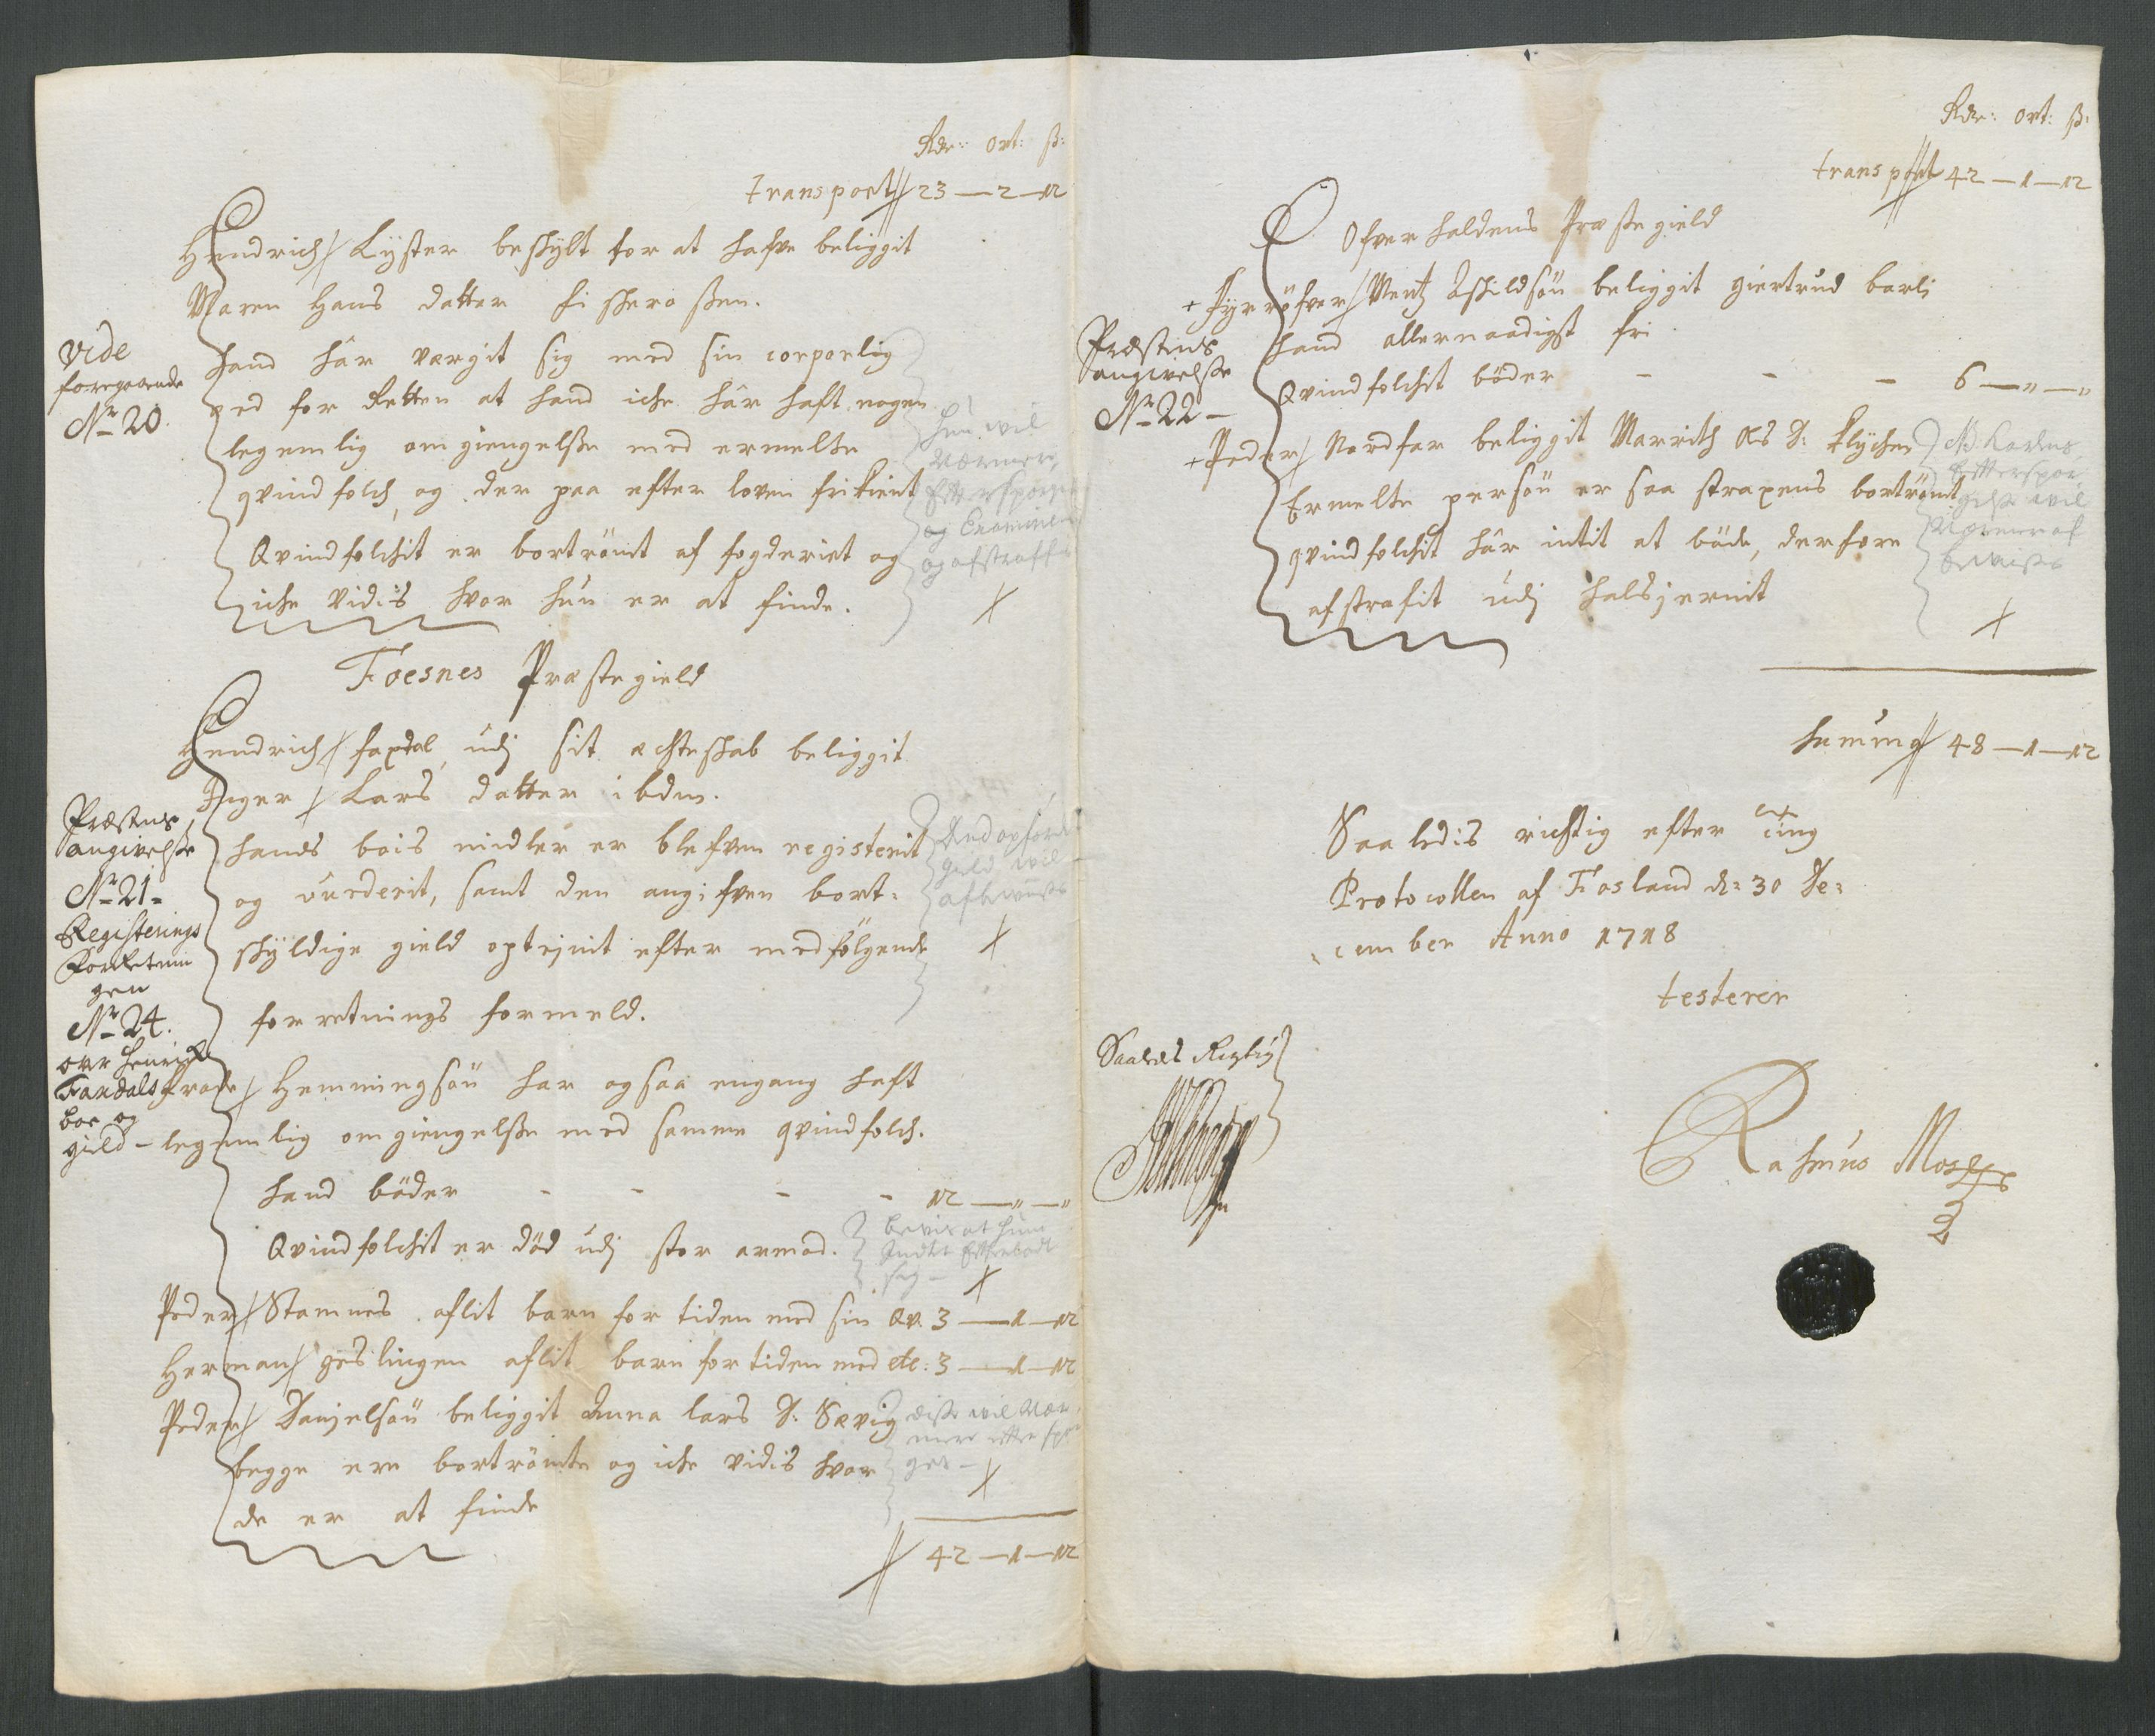 Rdr: Ort: ß:
transport 23 — 2 — 12
Hendrich Lyster beskylt for at hafve beliggit
Maren Hans datter fiskerossen.
vide
foregaaende
No 20.
hand här vergit sig med sin corporlig
eed for Retten at hand iche här haft nogen
legemlig omgiengelsse med ermelte
qvindfolch, og der paa efter loven frikient
Qvindfolchit er bortrömt af fogderiet og
iche vidis hvor hun er at finde.
hun wil
Nærmere
Efterspørges
og Examineres
og afstraffis
Foesnes Præstegield
Hendrich faxdal, udj sit echteskab beliggit
Inger Lars datter ibdm.
Præstens
angivelsse
No 21-
Registerings
Forretnin
gen
No 24.
ovr Henrich
Faxdals
boe og
gield -
hands bois midler er blefven registerit
og vurderit, samt den angifven bort-
skyldige gield optejnit efter medfölgende
forretnings formeld.
Hemmingsön har ogsaa engang haft
legemlig omgiengelsse med samme qvindfolch.
hand böder - - - - 12 — „ — „
Qvindfolchit er död udj stor armod.
bevis at hun
Peder Stamnes aflit barn for tiden med sin Qv. 3 — 1 — 12
Herman geslingen aflit barn for tiden med etc: 3 — 1 — 12
Peder Danjelsön beliggit Anna Lars D: Sævig
begge ere bortrömte og iche vidis hvor
de er at finde
disse wil Nær-
mere efterspør
ges -
42 — 1 — 12
Rdr: Ort: ß:
transport 42 — 1 — 12
Ofverhaldens Præstegield
+ Fyrröfver Mentz Askildsön beliggit giertrud barlj
Præstens
angivelsse
No 22 -
hand allernaadigst fri
Qvindfolchit böder - - - 6 — „ — „
+ Peder Nordfar beliggit Marrith Ols D: Klychen
Ermelte persön er saa straxens bortrömt
qvindfolchit här intit at böde, derfore
afstrafit udj halsjernit
Efterspør
gelsse wil
Nærmere af
bevisis
Summa 48 — 1 — 12
Saaledis richtig efter ting
Protocollen af Fosland d: 30 De-
cember Anno 1718
testerer
Saaledes Rigtig
Rasmus Moses